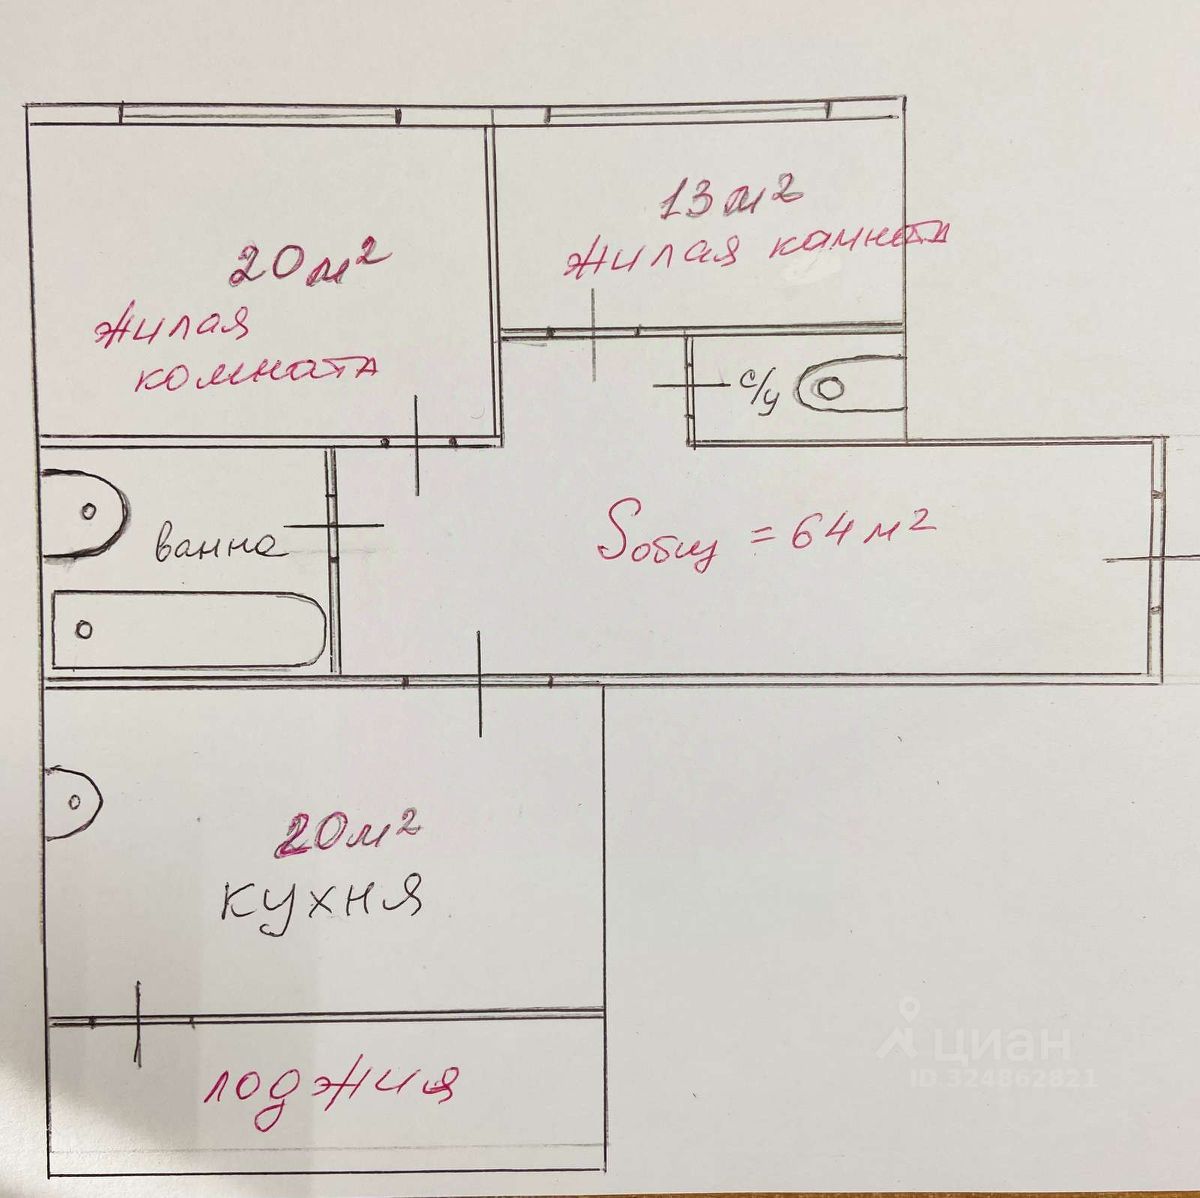 13м²
жилая камната
20м²
жилая
комната
с/у
Sобщ = 64м²
ванна
20м²
кухня
лоджия
циан
ID.324862821